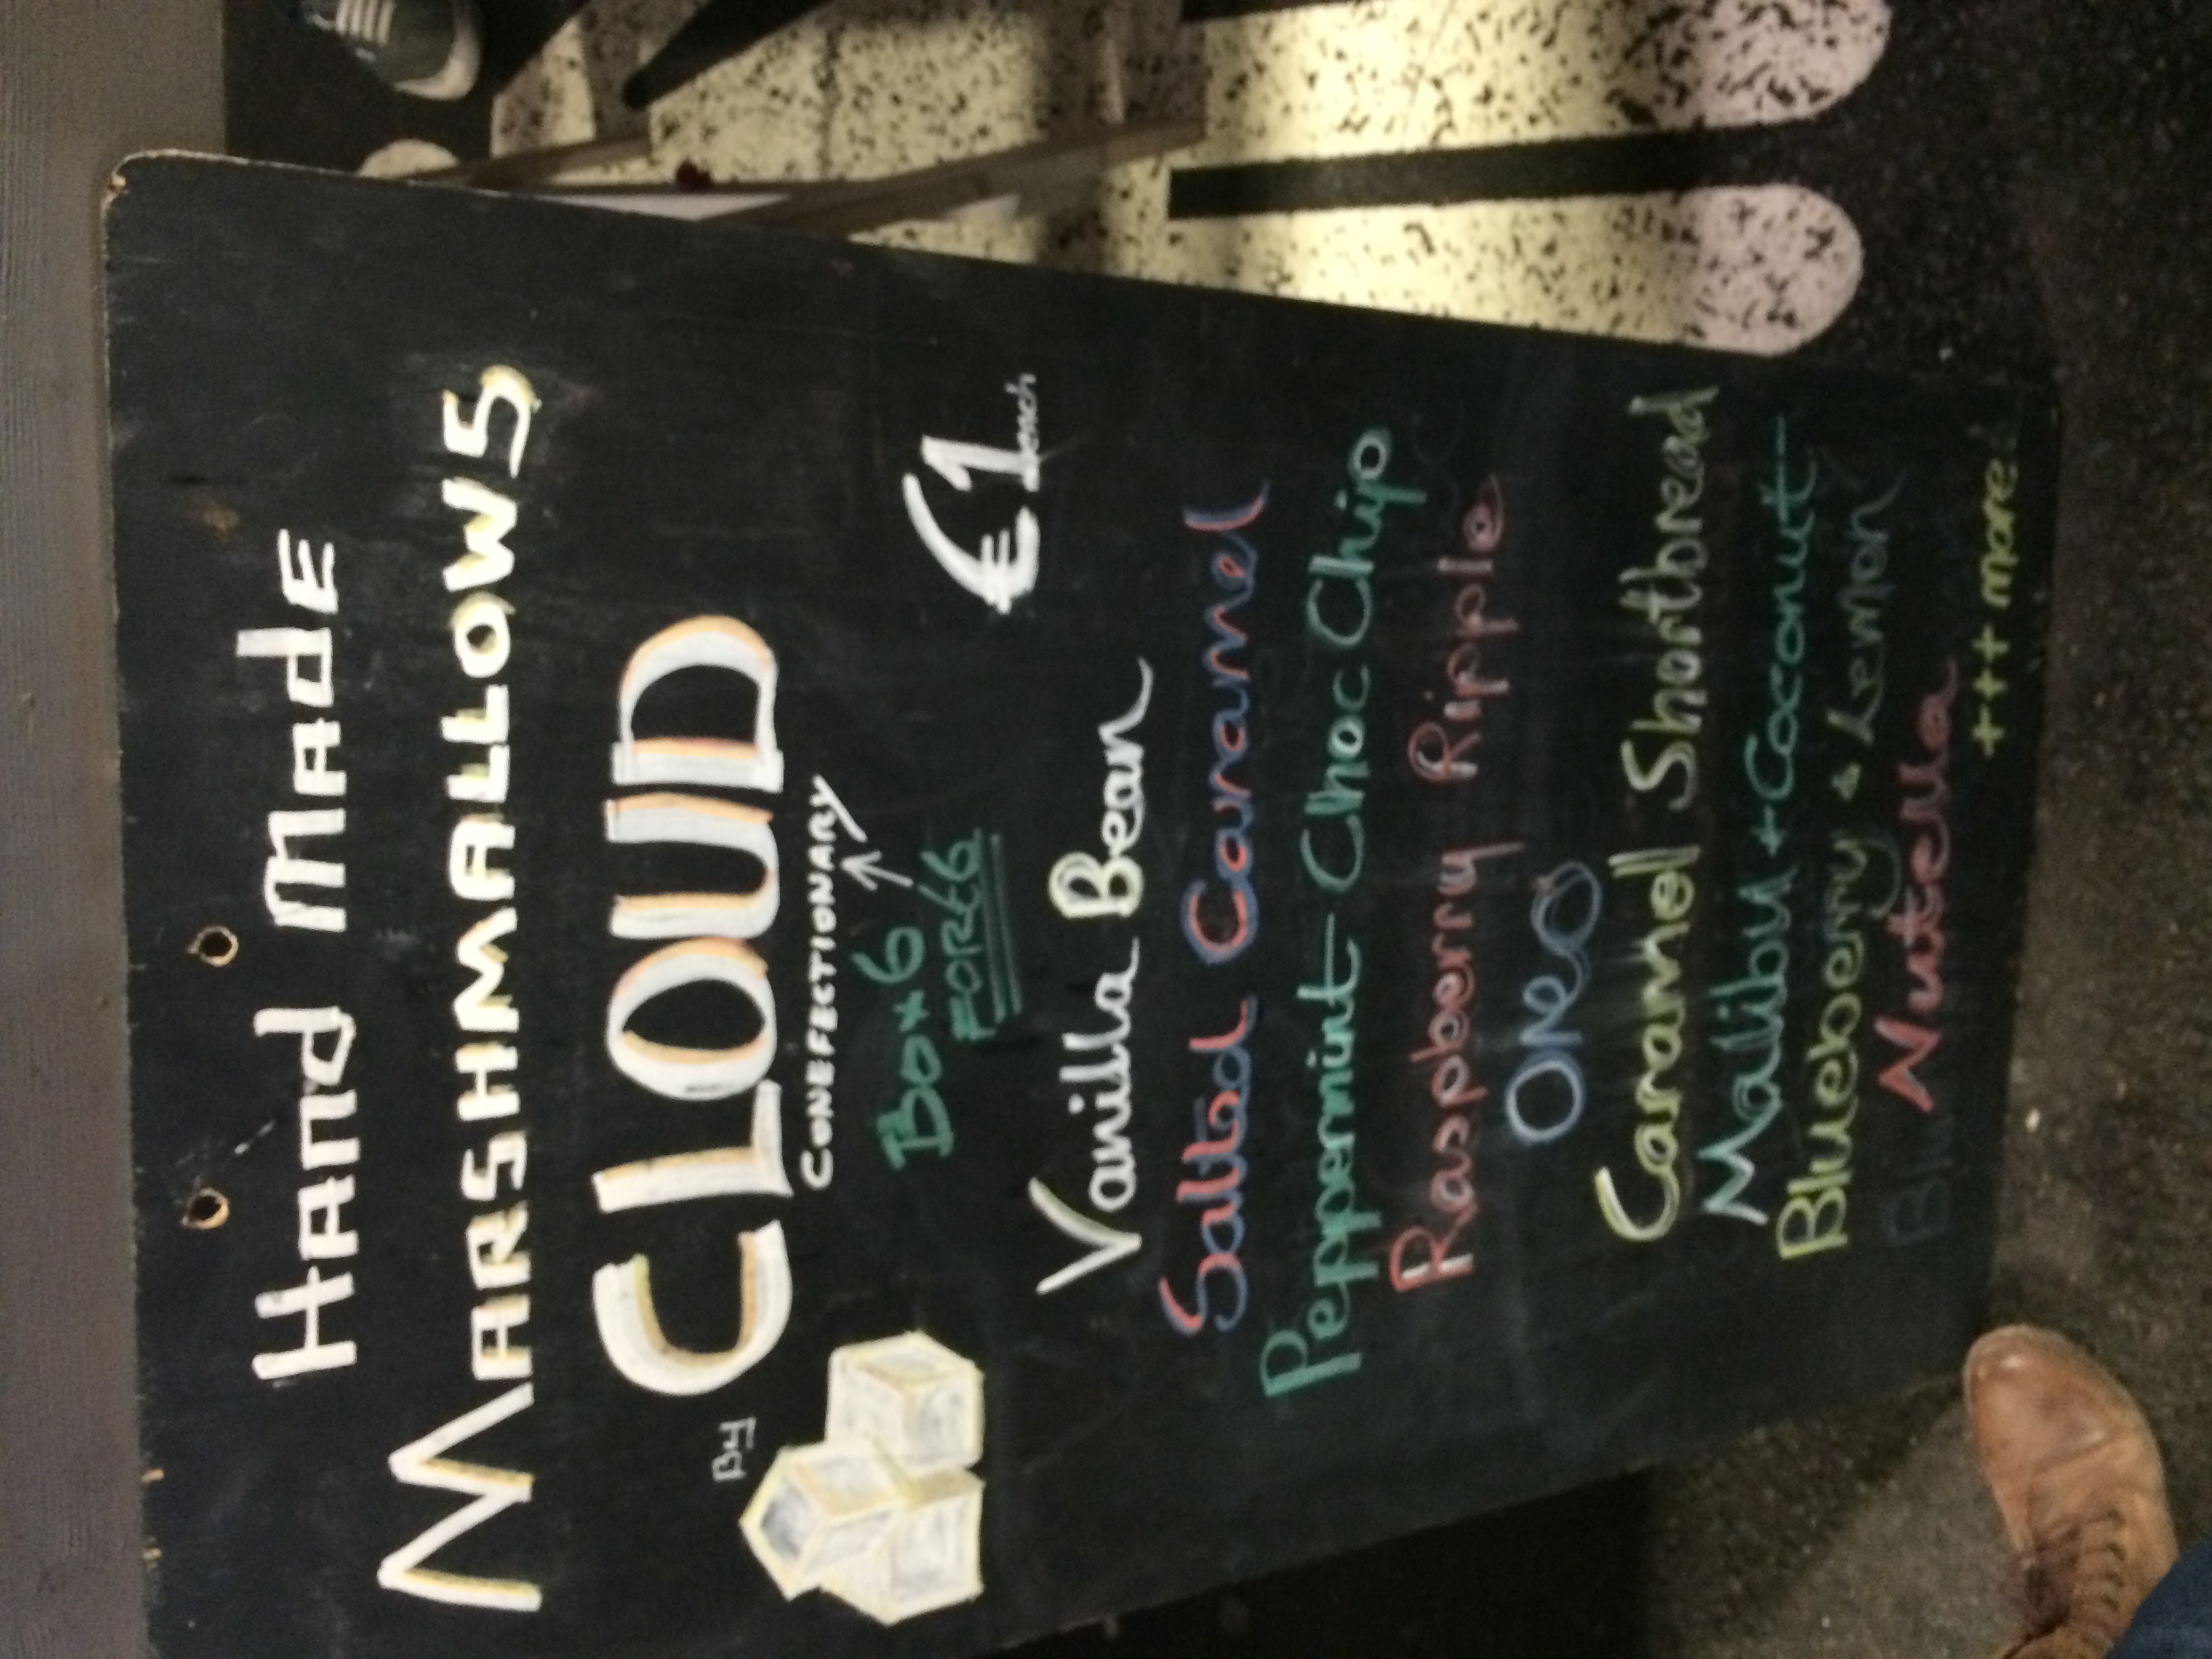 HAND MADE
MARSHMALLOWS
By CLOUD
CONEFECTIONARY
BOX 6
FOR €6
€1 each
Vanilla Bean
Salted Caramel
Peppermint Choc Chip
Raspberry Ripple
OREO
Caramel Shortbread
Malibu + Coconut
Blueberry & Lemon
Nutella
+++ more